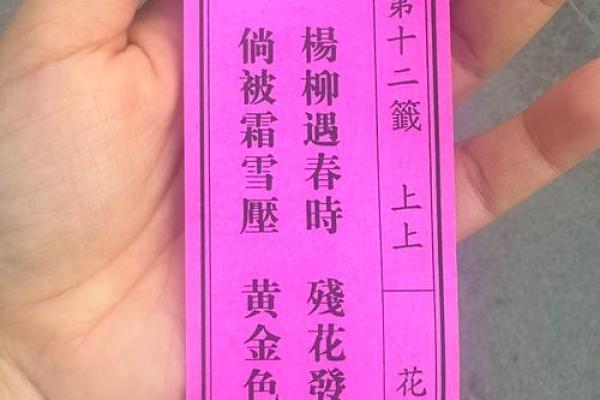 第十二籤 上上 花
楊柳遇春時 殘花發
倘被霜雪壓 黄金色